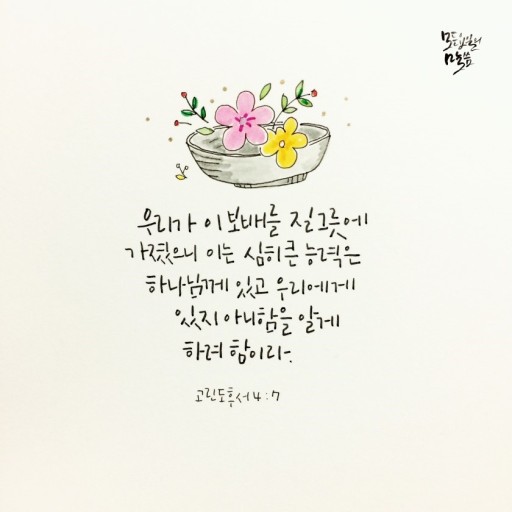 우리가 이 보배를 질그릇에
가졌으니 이는 심히 큰 능력은
하나님께 있고 우리에게
있지 아니함을 알게
하려 함이라.
고린도후서 4:7